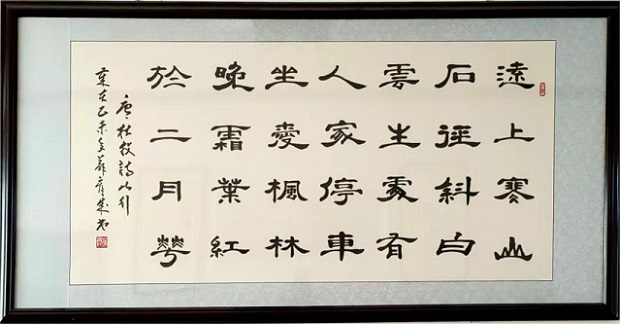 遠上寒山
石徑斜白
雲生處有
人家停車
坐愛楓林
晚霜葉紅
於二月華
唐杜牧詩山行
歲在乙未冬